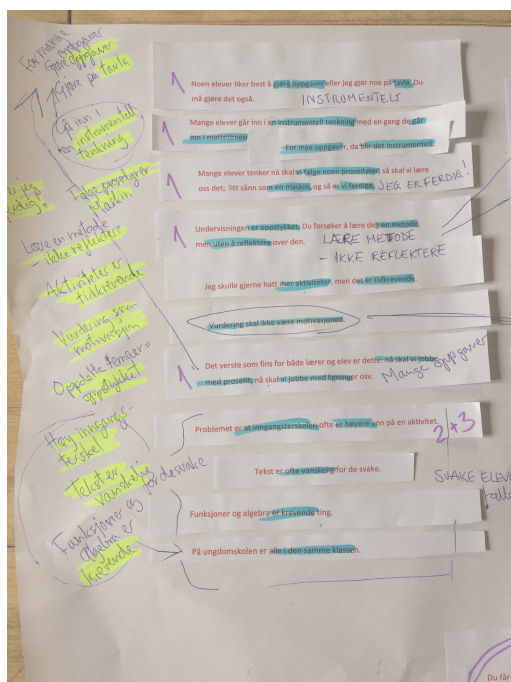 For mange
oppgaver
Gjøre oppgaver
Gjøre på tavla
Gå inn i
en instrumentell
tenkning
Følge prosedyrer
Maskin
Lære en metode
- ikke reflektere
Aktiviteter er
tidkrevende
Vurdering som
motivasjon
Oppdelte temaer =
oppstykket
Høy inngangs-
terskel
Tekster
vanskelig
for de svake
Funksjoner og
algebra er
krevende
1
Noen elever liker best å gjøre oppgaver eller jeg gjør noe på tavla. Du
må gjøre det også.
INSTRUMENTELT
1
Mange elever går inn i en instrumentell tenkning med en gang de går
inn i mattetimen
For mye oppgaver, da blir det instrumentelt
1
Mange elever tenker nå skal vi følge noen prosedyrer, så skal vi lære
oss det; litt sånn som en maskin, og så er vi ferdige.
JEG ER FERDIG!
1
Undervisningen er oppstykket. Du forsøker å lære deg en metode,
men uten å reflektere over den.
LÆRE METODE
- IKKE REFLEKTERE
Jeg skulle gjerne hatt mer aktiviteter, men det er tidkrevende.
Vurdering skal ikke være motivasjonen.
1
Det verste som fins for både lærer og elev er dette- nå skal vi jobbe
med prosent, nå skal vi jobbe med ligninger osv.
Mange oppgaver
Problemet er at inngangsterskelen ofte er høyere enn på en aktivitet.
2+3
Tekst er ofte vanskelig for de svake.
SVAKE ELEV
Funksjoner og algebra er krevende ting.
På ungdomskolen er alle i den samme klassen.
Du får